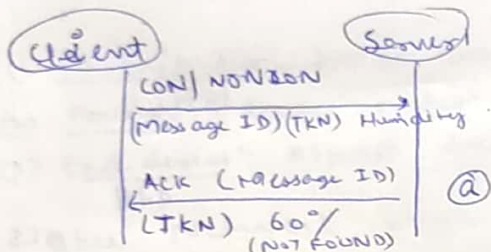 Client Server
CON/ NONCON
(Message ID) (TKN) Humidity
ACK (Message ID)
(TKN) 60%
(NOT FOUND)
a